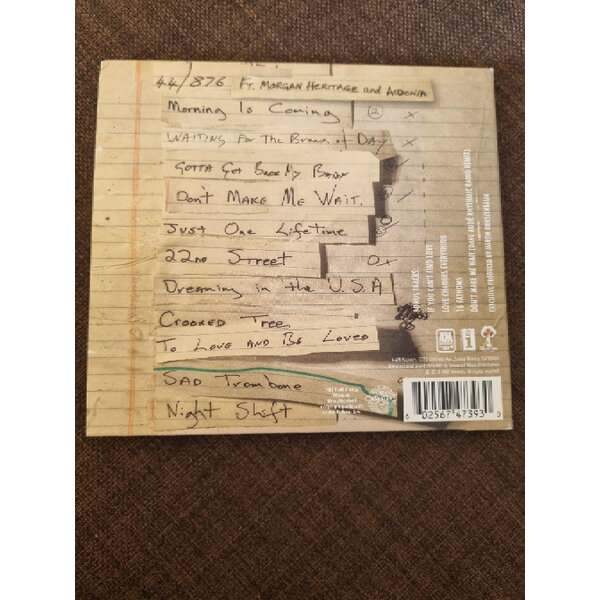 44/876 Ft. Morgan Heritage and Aidonia
Morning Is Coming 2 x
WAITING For The Break of DAY x
GOTTA Get Back My BABY
Don't MAKE ME WAIT.
Just One Lifetime
22ND Street
Dreaming in the U.S.A
Crooked Tree
To Love AND Be Loved
SAD Trombone
Night Shift
BONUS TRACKS:
IF YOU CAN'T FIND LOVE
LOVE CHANGES EVERYTHING
16 FATHOMS
DON'T MAKE ME WAIT (DAVE AUDÉ RHYTHMIC RADIO REMIX)
EXECUTIVE PRODUCED BY MARTIN KIERSZENBAUM
A&M
6 02567 47393 0